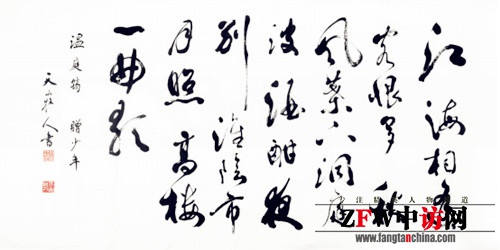 江海相逢
客恨多秋
風葉下洞庭
波酒酣夜
别淮陰市
月照高樓
一曲歌
温庭筠 贈少年
人書
中访网
www.fangtanchina.com